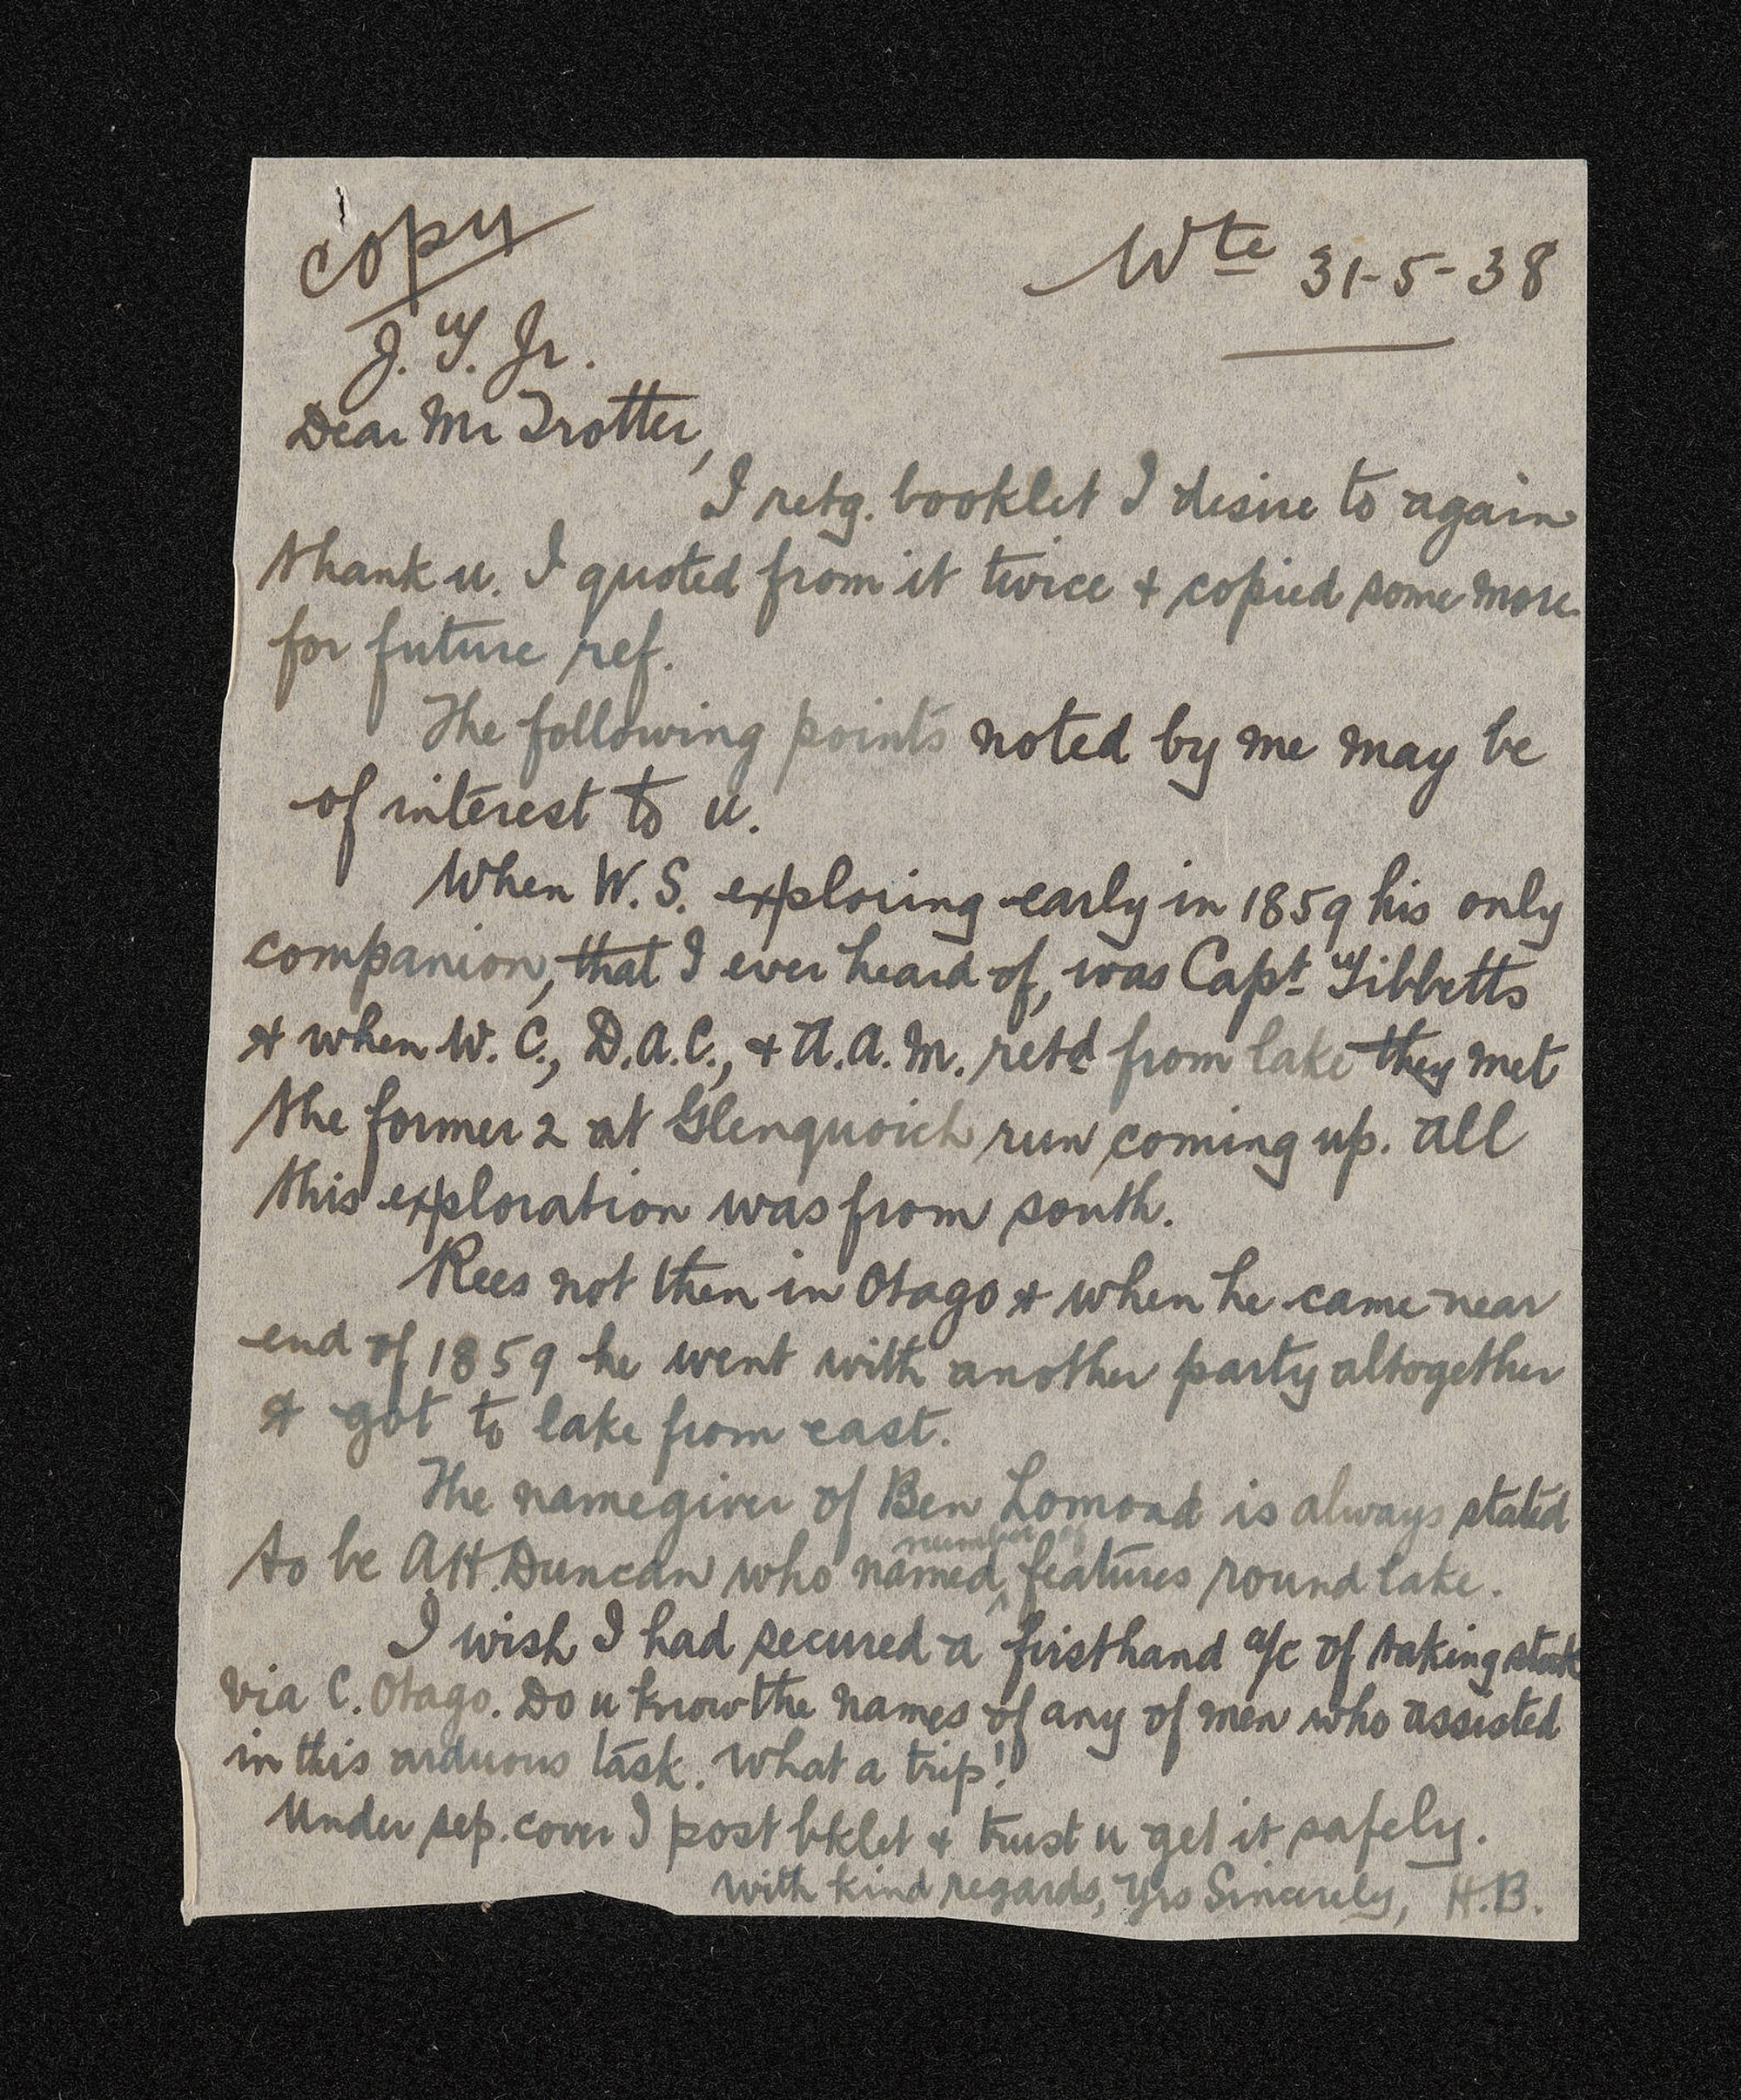 copy
Wte 31-5-38
J. T. Jr.
Dear Mr Trotter,
I retg. booklet I desire to again
thank u. I quoted from it twice + copied some more
for future ref.
The following points noted by me may be
of interest to u.
When W. S. exploring early in 1859 his only
companion, that I ever heard of, was Capt Tibbetts
+ when W. C., D.A.C., + A.A.M. retd from lake they met
the former 2 at Glenquoich run coming up. All
this exploration was from south.
Rees not then in Otago + when he came near
end of 1859 he went with another party altogether
+ got to lake from east.
The namegiver of Ben Lomond is always stated
number of
to be AH. Duncan who named ‸ features round lake.
I wish I had secured a firsthand a/c of taking stock
via C. Otago. Do u know the names of any of men who assisted
in this arduous task. What a trip!
Under sep. cover I post bklet + trust u get it safely.
with kind regards, Yrs Sincerely, H.B.